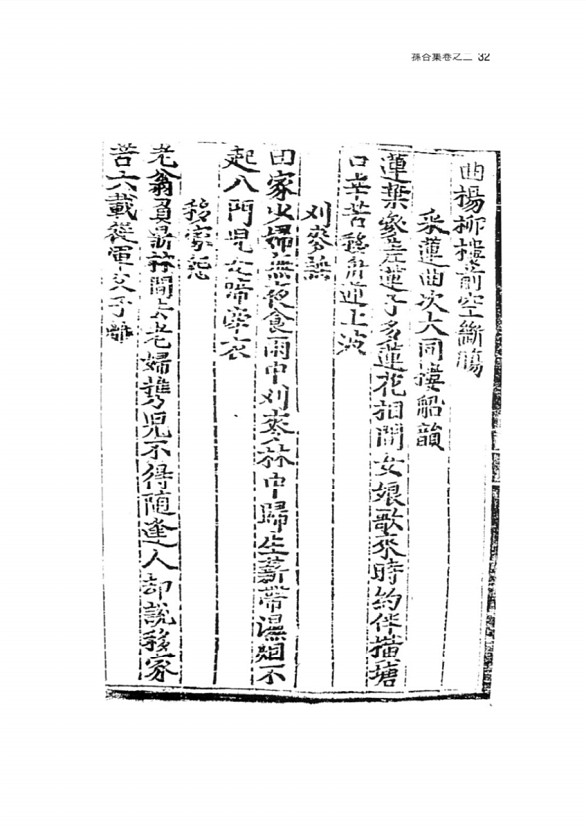 蓀谷集卷之二 32
曲楊柳樓前空斷膓
采蓮曲次大同樓船韻
蓮葉參差蓮子多蓮花相間女娘歌來時約伴橫塘
口辛苦移舟逆上波
刈麥謠
田家少婦無夜食雨中刈麥林中歸生薪帶濕烟不
起入門兒女啼牽衣
移家怨
老翁負鼎林間去老婦携兒不得隨逢人却說移家
苦六載從軍父子離